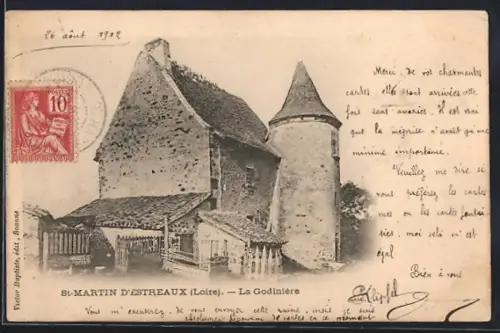 26 août 1902
10
Merci, de vos charmantes
cartes elles sont arrivées tout
fait sans avaries. Il est vrai
que la méprise n'avait qu'une
minime importance.
Veuillez me dire si
vous préférez les cartes
vues ou les cartes fantai
sies, moi cela m'est
égal
Bien à vous
Victor Baptiste, édit., Roanne
St-MARTIN D'ESTREAUX (Loire). - La Godinière
Vous m'excuserez, de vous envoyer cette ruine, mais je suis
absolument de cartes en ce moment